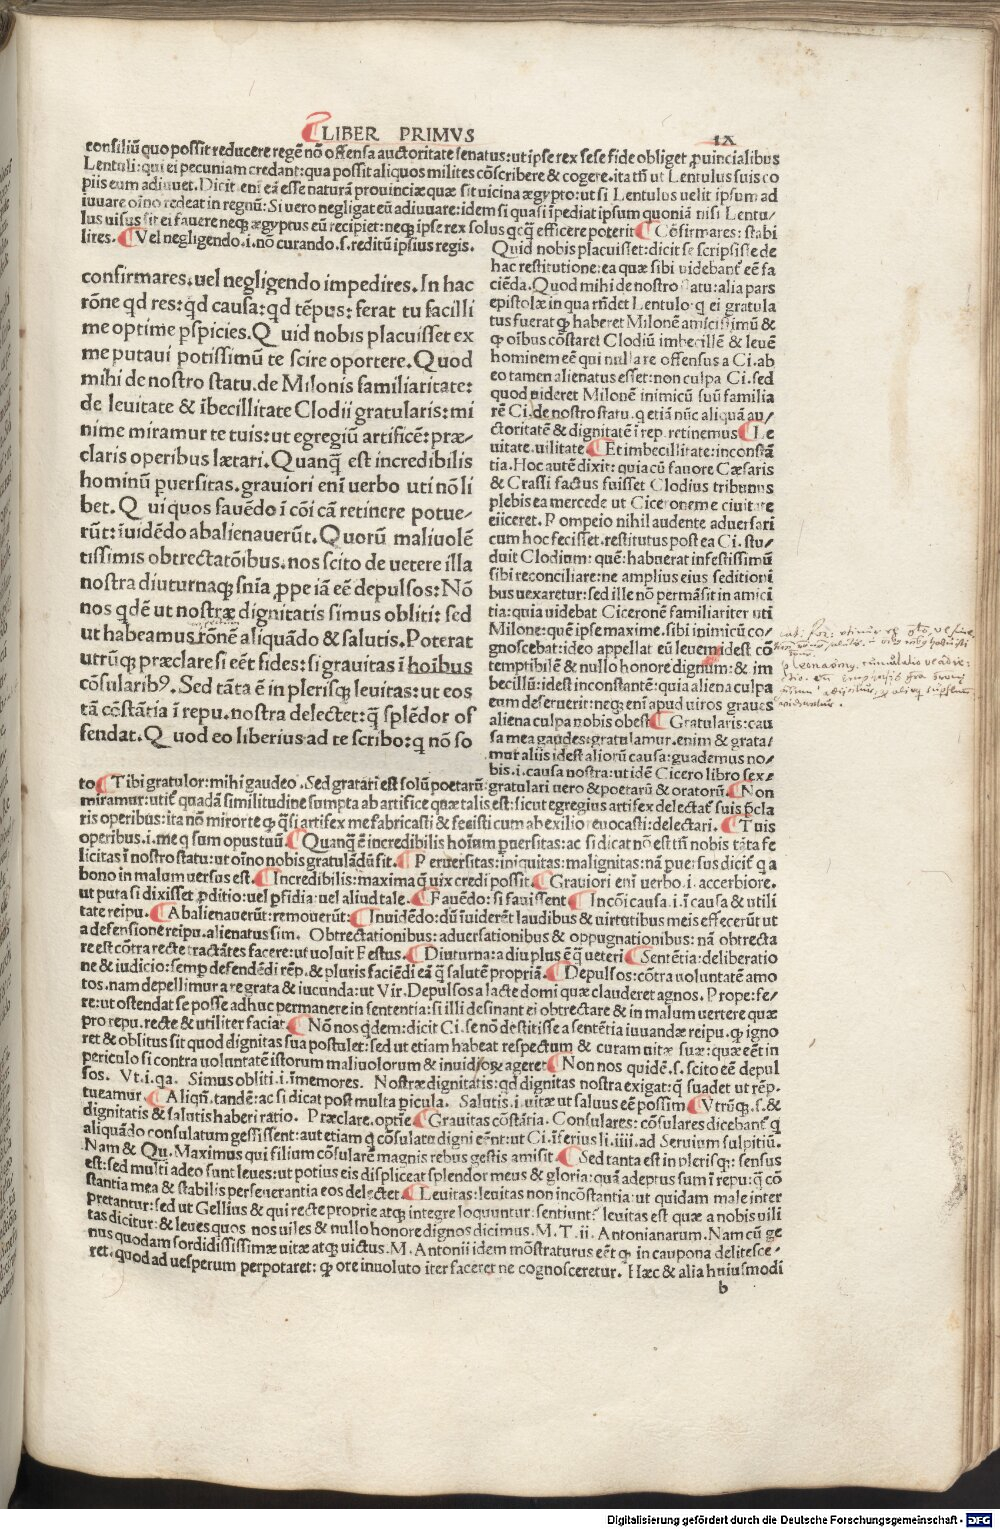 LIBER PRIMVS
IX
consiliũ quo possit reducere regẽ nõ offensa auctoritate senatus: ut ipse rex sese fide obliget ꝓuincialibus
Lentuli: qui ei pecuniam credant: qua possit aliquos milites cõscribere & cogere. ita tñ ut Lentulus suis co
piis eum adiuuet. Dicit eni eã esse naturã prouinciæ quæ sit uicina ægypto: ut si Lentulus uelit ipsum ad
iuuare oĩno redeat in regnũ: Si uero negligat eũ adiuuare: idem si quasi ĩpediat ipsum quoniã nisi Lentu/
lus uisus sit ei fauere neqȝ ægyptus eũ recipiet: neqȝ ipse rex solus qcq̃ efficere poterit. Cõfirmares: stabi
lires. Vel negligendo .i. nõ curando .s. reditũ ipsius regis.
confirmares. uel negligendo impedires. In hac
rõne qd res: qd causa: qd tẽpus: ferat tu facilli
me optime ꝑspicies. Quid nobis placuisset ex
me putaui potissimũ te scire oportere. Quod
mihi de nostro statu. de Milonis familiaritate:
de leuitate & ĩbecillitate Clodii gratularis: mi
nime miramur te tuis: ut egregiũ artificẽ: præ/
claris operibus lætari. Quanq̃ est incredibilis
hominũ ꝑuersitas. grauiori enĩ uerbo uti nõ li
bet. Qui quos fauẽdo ĩ cõi cã retinere potue/
rũt: ĩuidẽdo abalienauerũt. Quorũ maliuolẽ
tissimis obtrectatõibus. nos scito de uetere illa
nostra diuturnaqȝ sñia ꝓpe iã eẽ depulsos: Nõ
nos qdẽ ut nostræ dignitatis simus obliti: sed
ut habeamus rõnẽ aliquãdo & salutis. Poterat
utrũqȝ præclare si eẽt fides: si grauitas ĩ hoĩbus
cõsularibꝰ. Sed tãta ẽ in plerisqȝ leuitas: ut eos
tã cõstãtia ĩ repu. nostra delectet: q̃ splẽdor of
fendat. Quod eo liberius ad te scribo: q nõ so
Quid nobis placuisset: dicit se scripsisse de
hac restitutione: ea quæ sibi uidebant eẽ fa
ciẽda. Quod mihi de nostro statu: alia pars
epistolæ in qua rñdet Lentulo q ei gratula
tus fuerat qȝ haberet Milonẽ amicissimũ &
qȝ oĩbus cõstaret Clodiũ imbecillẽ & leuẽ
hominem eẽ qui nulla re offensus a Ci. ab
eo tamen alienatus esset: non culpa Ci. sed
quod uideret Milonẽ inimicũ suũ familia
rẽ Ci. de nostro statu. q etiã nũc aliquã au/
ctoritatẽ & dignitatẽ ĩ rep. retinemus Le
uitate. uilitate. Et imbecillitate: inconstã
tia. Hoc autẽ dixit: quia cũ fauore Cæsaris
& Crassi factus fuisset Clodius tribunus
plebis ea mercede ut Ciceronem e ciuitate
eiiceret. Pompeio nihil audente aduersari
cum hoc fecisset. restitutus post ea Ci. stu/
duit Clodium: quẽ habuerat infestissimũ
sibi reconciliare: ne amplius eius seditioni
bus uexaretur: sed ille nõ permãsit in amici
tia: quia uidebat Ciceronẽ familiariter uti
Milone: quẽ ipse maxime. sibi inimicũ co/
gnoscebat: ideo appellat eũ leuem idest cõ
temptibilẽ & nullo honore dignum: & im
becillũ: idest inconstantẽ: quia aliena culpa
eum deseruerit: neqȝ enĩ apud uiros graues
aliena culpa nobis obest Gratularis: cau
sa mea gaudes: gratulamur. enim & grata/
mur aliis idest aliorũ causa: guademus no/
bis .i. causa nostra: ut idẽ Cicero libro sex/
to Tibi gratulor: mihi gaudeo. Sed gratari est solũ poetarũ: gratulari uero & poetarũ & oratorũ. Non
miramur: utit quadã similitudine sumpta ab artifice quæ talis est: sicut egregius artifex delectat suis p̃cla
ris operibus: ita nõ miror te qȝ q̃si artifex me fabricasti & fecisti cum ab exilio reuocasti: delectari. Tuis
operibus .i. me q sum opus tuũ. Quanq̃ ẽ incredibilis hoĩum ꝑuersitas: ac si dicat nõ est tñ nobis tãta fe
licitas ĩ nostro statu: ut oĩno nobis gratulãdũ sit. Peruersitas: iniquitas: malignitas: nã ꝑuersus dicit q a
bono in malum uersus est. Incredibilis: maxima q̃ uix credi possit. Grauiori enĩ uerbo .i. accerbiore.
ut puta si dixisset ꝓditio: uel ꝑfidia: uel aliud tale. Fauẽdo: si fauissent Incõi causa .i. ĩ causa & utili
tate reipu. Abalienauerũt: remouerũt: Inuidẽdo: dũ ĩuiderẽt laudibus & uirtutibus meis effecerũt ut
a defensione reipu. alienatus sim. Obtrectationibus: aduersationibus & oppugnationibus: nã obtrecta
re est cõtra recte tractãtes facere: ut uoluit Festus. Diuturna: a diu plus ẽ q̃ ueteri Sentẽtia: deliberatio
ne & iudicio: semꝑ defendẽdi rẽp. & pluris faciẽdi eã q̃ salutẽ propriã. Depulsos: cõtra uoluntatẽ amo
tos. nam depellimur a re grata & iucunda: ut Vir. Depulsos a lacte domi quæ clauderet agnos. Prope: fe/
re: ut ostendat se posse adhuc permanere in sententia: si illi desinant ei obtrectare & in malum uertere quæ
pro repu. recte & utiliter faciat Nõ nos qdem: dicit Ci. se nõ destitisse a sentẽtia iuuandæ reipu. qȝ igno
ret & oblitus sit quod dignitas sua postulet: sed ut etiam habeat respectum & curam uitæ suæ: quæ eẽt in
periculo si contra uoluntatẽ istorum maliuolorum & inuidiose ageret Non nos quidẽ .s. scito eẽ depul
sos. Vt .i. qa. Simus obliti .i. ĩmemores. Nostræ dignitatis: qd dignitas nostra exigat: q̃ suadet ut rẽp.
tueamur. Aliqñ. tandẽ: ac si dicat post multa ꝑicula. Salutis .i. uitæ ut saluus eẽ possim Vtrũqȝ .s. &
dignitatis & salutis haberi ratio. Præclare. optĩe Grauitas cõstãtia. Consulares: cõsulares dicebant q
aliquãdo consulatum gessissent: aut etiam q cõsulatu digni eẽnt: ut Ci. ĩferius li. iiii. ad Seruium sulpitiũ.
Nam & Qu. Maximus qui filium cõsularẽ magnis rebus gestis amisit. Sed tanta est in plerisqȝ: sensus
est: sed multi adeo sunt leues: ut potius eis displiceat splendor meus & gloria: quã adeptus sum ĩ repu: q̃ cõ
stantia mea & stabilis perseuerantia eos delectet. Leuitas: leuitas non incõstantia: ut quidam male inter
pretantur: sed ut Gellius & qui recte proprie atqȝ integre loquuntur: sentiunt: leuitas est quæ a nobis uili
tas dicitur: & leues quos nos uiles & nullo honore dignos dicimus. M. T. ii. Antonianarum. Nam cũ ge
nus quodam sordidississimæ uitæ atqȝ uictus. M. Antonii idem mõstraturus eẽt qȝ in caupona delitesce/
ret. quod ad uesperum perpotaret: qȝ ore inuoluto iter faceret ne cognosceretur. Hæc & alia huiusmodi
b
Digitalisierung gefördert durch die Deutsche Forschungsgemeinschaft - DFG